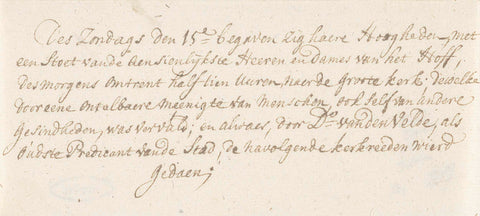 Des Zondags den 15.e begaven zig haere Hoogheden, met
een Stoet van de Aansienlijkste Heeren en dames van het Hoff,
des morgens omtrent half tien Auren, naer de Grote kerk: dewelke
door eene ontelbaere meenigte van Menschen, ook self van andere
Gesindheden, was vervuld; en alwaer, door D.o van den Velde, als
Oudste Predicant van de Stad, de navolgende kerkreeden wierd
Gedaen;